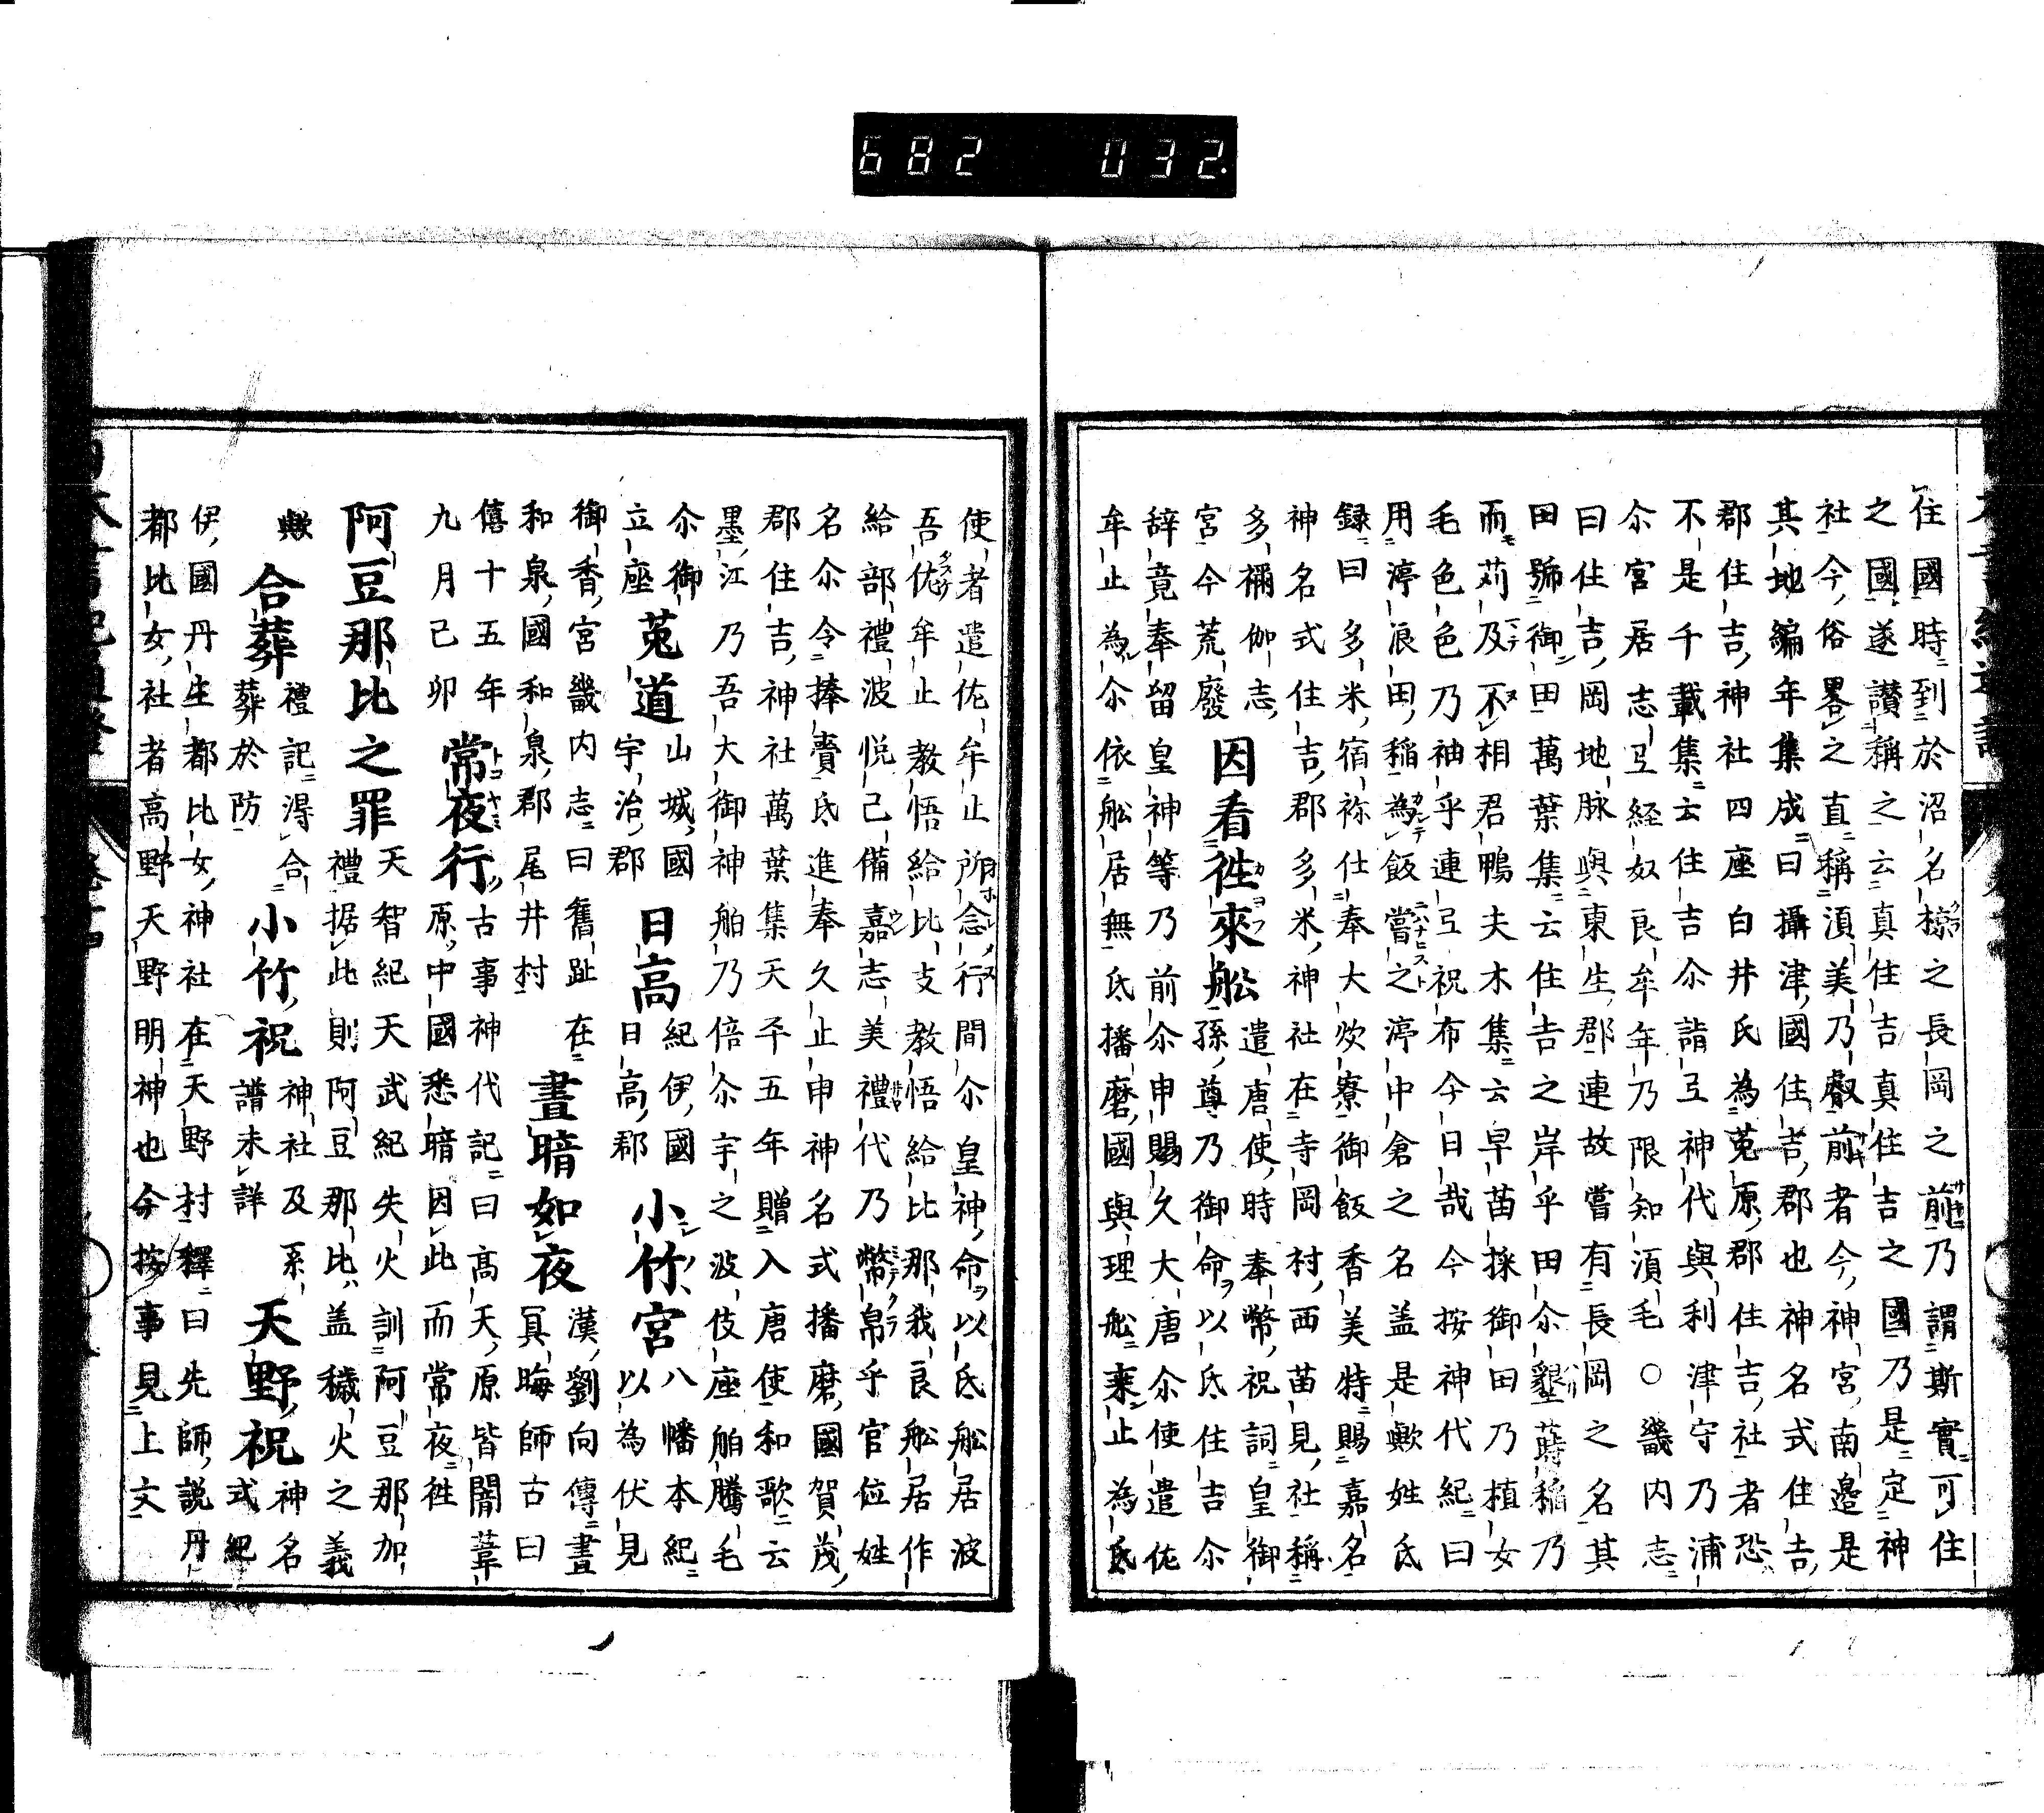 682 032.
住國時到於沼名椋之長岡之前乃謂斯實可住
之國遂讃稱之云真住吉真住吉之國乃是定神
社今俗畧之直稱須美乃叡前者今神宮南邊是
其地編年集成曰攝津國住吉郡也神名式住吉
郡住吉神社四座白井氏為菟原郡住吉社者恐
不是千載集云住吉尒詣弖神代與利津守乃浦
尒宮居志弖経奴良牟年乃限知須毛○畿内志
曰住吉岡地脉與東生郡連故嘗有長岡之名其
田號御田萬葉集云住吉之岸乎田尒墾蒔稲乃
而苅及不相君鴨夫木集云早苗採御田乃植女
毛色色乃袖乎連弖祝布今日哉今按神代紀曰
用渟浪田稲為飯嘗之渟中倉之名盖是歟姓氏
録曰多米宿祢仕奉大炊寮御飯香美特賜嘉名
神名式住吉郡多米神社在寺岡村西苗見社稱
多禰伽志遣唐使時奉幣祝詞皇御
宮今荒廢因看徃來舩孫尊乃御命以氐住吉尒
辞竟奉留皇神等乃前尒申賜久大唐尒使遣佐
牟止為尒依舩居無氐播磨國與理舩乗止為氐
使者遣佐牟止所念行間尒皇神命以氐舩居波
吾佐牟止教悟給比支教悟給比那我良舩居作
給部禮波悦己備嘉志美禮代乃幣帛乎官位姓
名尒令捧賷氐進奉久止申神名式播磨國賀茂
郡住吉神社萬葉集天平五年贈入唐使和歌云
墨江乃吾大御神舶乃倍尒宇之波伎座舶騰毛
尒御立座菟道山城國宇治郡日高紀伊國日高郡小竹宮八幡本紀以為伏見
御香宮畿内志曰舊趾在
和泉國和泉郡尾井村晝暗如夜漢劉向傳晝冥晦師古曰
僖十五年九月己卯常夜行古事神代記曰高天原皆闇葦原中國悉暗因此而常夜徃
阿豆那比之罪天智紀天武紀失火訓阿豆那加禮据此則阿豆那比盖穢火之義
歟合葬禮記淂合葬於防小竹祝神社及系譜未詳天野祝神名式紀
伊國丹生都比女神社在天野村釋曰先師説丹
都比女社者高野天野明神也今按事見上文